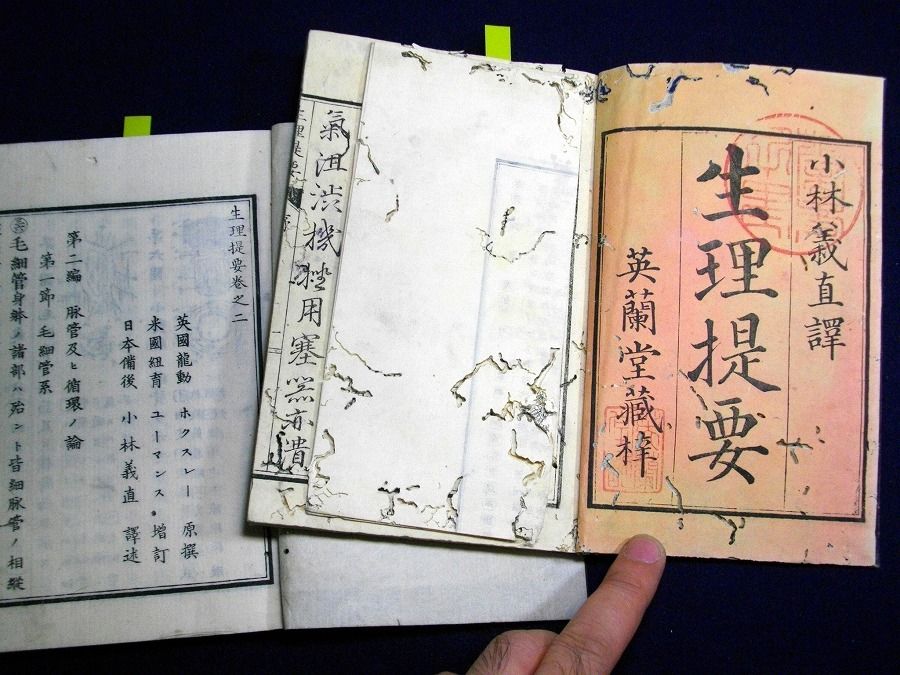 小林義直譯
生理提要
英蘭堂藏梓
氣沮渋機
用塞
亦潰
生理提要
生理提要卷之二
英國龍動 ホクスレー 原撰
米國紐育 ユーマンス 增訂
日本備後 小林義直 譯述
第二編 脉管及ヒ循環ノ論
第一節 毛細管系
毛細管身體ノ諸部ハ殆ント皆細脉管ノ相縱